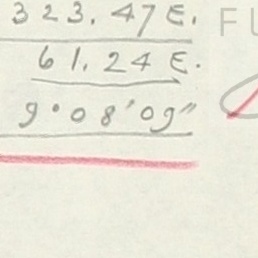 323.47 E. FU
61.24 E.
9°08'09"